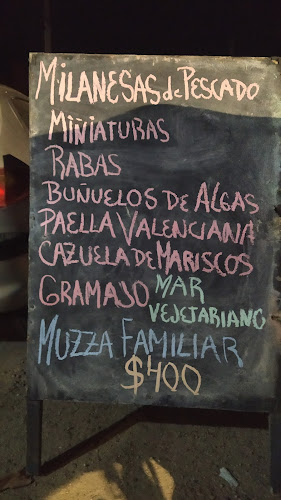 MILANESAS de PESCADO
MIÑIATURAS
RABAS
BUÑUELOS DE ALGAS
PAELLA VALENCIANA
CAZUELA DE MARISCOS
GRAMAJO MAR
VEJETARIANO
MUZZA FAMILIAR
$400